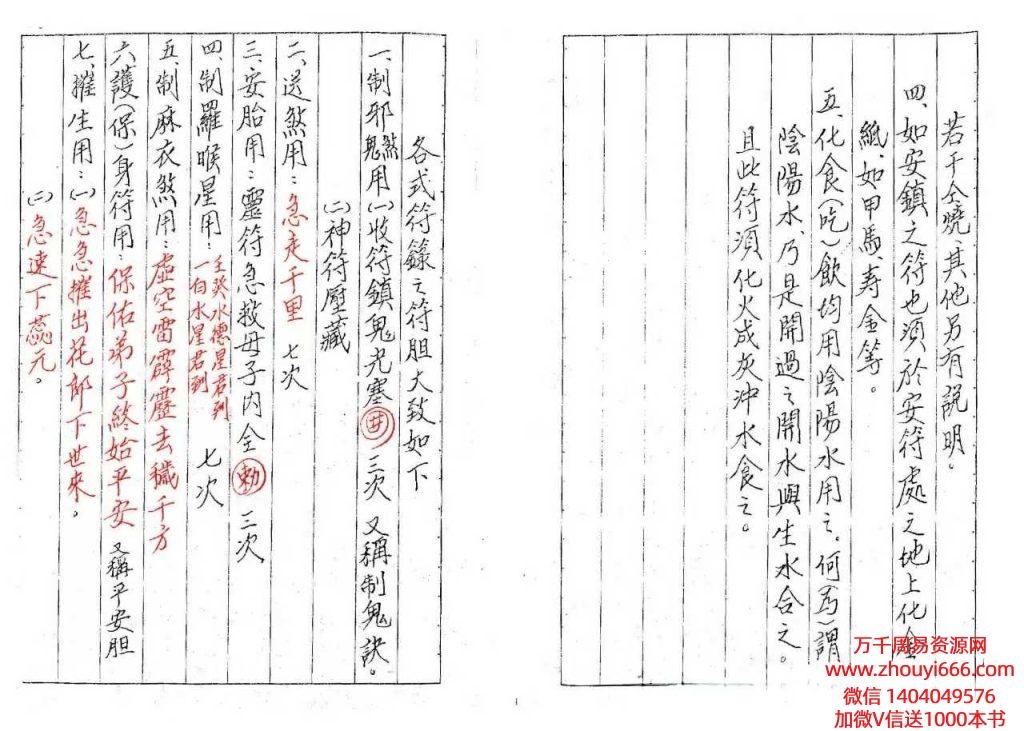 若干仝燒、其他另有說明。
四、如安鎮之符也須於安符處之地上化金
紙、如甲馬、壽金等。
五、化食(吃)飲均用陰陽水用之。何(為)謂
陰陽水、乃是開過之開水與生水合之。
且此符須化火成灰沖水食之。
各式符籙之符胆大致如下
一、制邪煞鬼用(一)收符鎮鬼光塞 井 三次 又稱制鬼訣。
(二)神符壓藏
二、送煞用：急走千里 七次
三、安胎用：靈符急救母子內全 勅 三次
四、制羅睺星用：壬癸水德星君到
一白水星君到 七次
五、制麻衣煞用：虛空雷霹靂去穢千方
六、護(保)身符用：保佑弟子終始平安 又稱平安胆
七、摧生用：(一)急急摧出花郎下世來。
(二)急速下蕊元。
万千周易资源网
www.zhouyi666.com
微信 1404049576
加微V信送1000本书